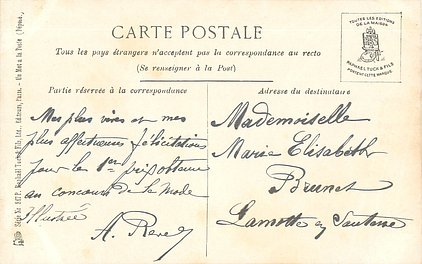 CARTE POSTALE
Tous les pays étrangers n'acceptent pas la correspondance au recto
(Se renseigner à la Post)
Partie réservée à la correspondance
Mes plus vives et mes
plus affectueuses félicitations
pour le 1er prix
au concours de la Mode
Illustrée
A.
Adresse du destinataire
Mademoiselle
Marie Elisabeth
Brunet
Lamotte en
TOUTES LES EDITIONS
DE LA MAISON
RAPHAEL TUCK & FILS
PORTENT CETTE MARQUE
Raphael Tuck & Fils, Ltd., Editeurs, Paris.